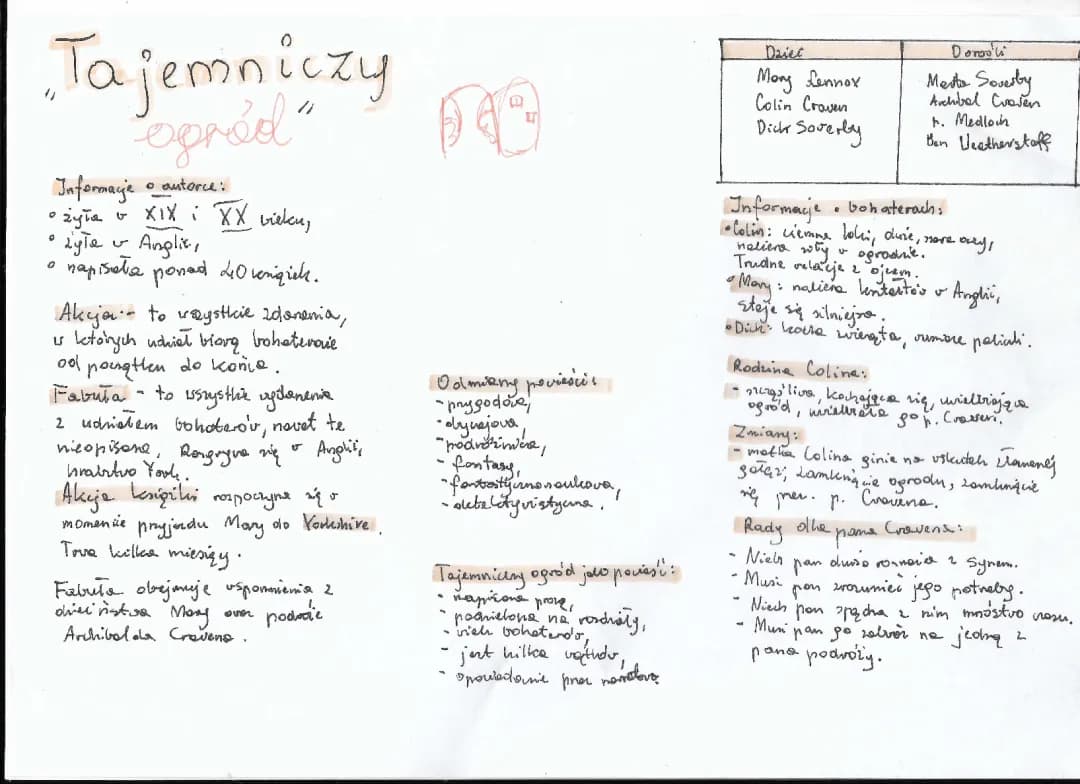 „Tajemniczy
ogród"
Informacje o autorce:
• żyła w XIX i XX wieku,
• żyła w Anglii,
• napisała ponad 40 książek.
Akcja - to wszystkie zdarzenia,
w których udział biorą bohaterowie
od początku do końca.
Fabuła - to wszystkie wydarzenia
z udziałem bohaterów, nawet te
nieopisane. Rozgrywa się w Anglii,
hrabstwo York.
Akcja książki rozpoczyna się w
momencie przyjazdu Mary do Yorkshire.
Trwa kilka miesięcy.
Fabuła obejmuje wspomnienia z
dzieciństwa Mary oraz podróże
Archibalda Cravena.
Odmiany powieści:
- przygodowa,
- obyczajowa,
- podróżnicza,
- fantasy,
- fantastycznonaukowa,
- detektywistyczna.
Tajemniczy ogród jako powieść:
- napisana prozą,
- podzielona na rozdziały,
- wielu bohaterów,
- jest kilka wątków,
- opowiadanie przez narratora.
Dzieci Dorośli
Mary Lennox Marta Soverby
Colin Craven Archibal Craven
Dick Soverby p. Medloch
Ben Weatherstaff
Informacje o bohaterach:
• Colin: ciemne loki, duże, szare oczy,
nabiera siły w ogrodzie.
Trudne relacje z ojcem.
• Mary: nabiera kształtów w Anglii,
staje się silniejsza.
• Dick: kocha zwierzęta, rumiane policzki.
Rodzina Colina:
- szczęśliwa, kochająca się, uwielbiająca
ogród, uwielbiała go p. Craven.
Zmiany:
- matka Colina ginie na skutek złamanej
gałęzi, zamknięcie ogrodu, zamknięcie
się przez p. Cravena.
Rady dla pana Cravena:
- Niech pan dużo rozmawia z synem.
- Musi pan zrozumieć jego potrzeby.
- Niech pan spędza z nim mnóstwo czasu.
- Musi pan go zabrać na jedną z
pana podróży.